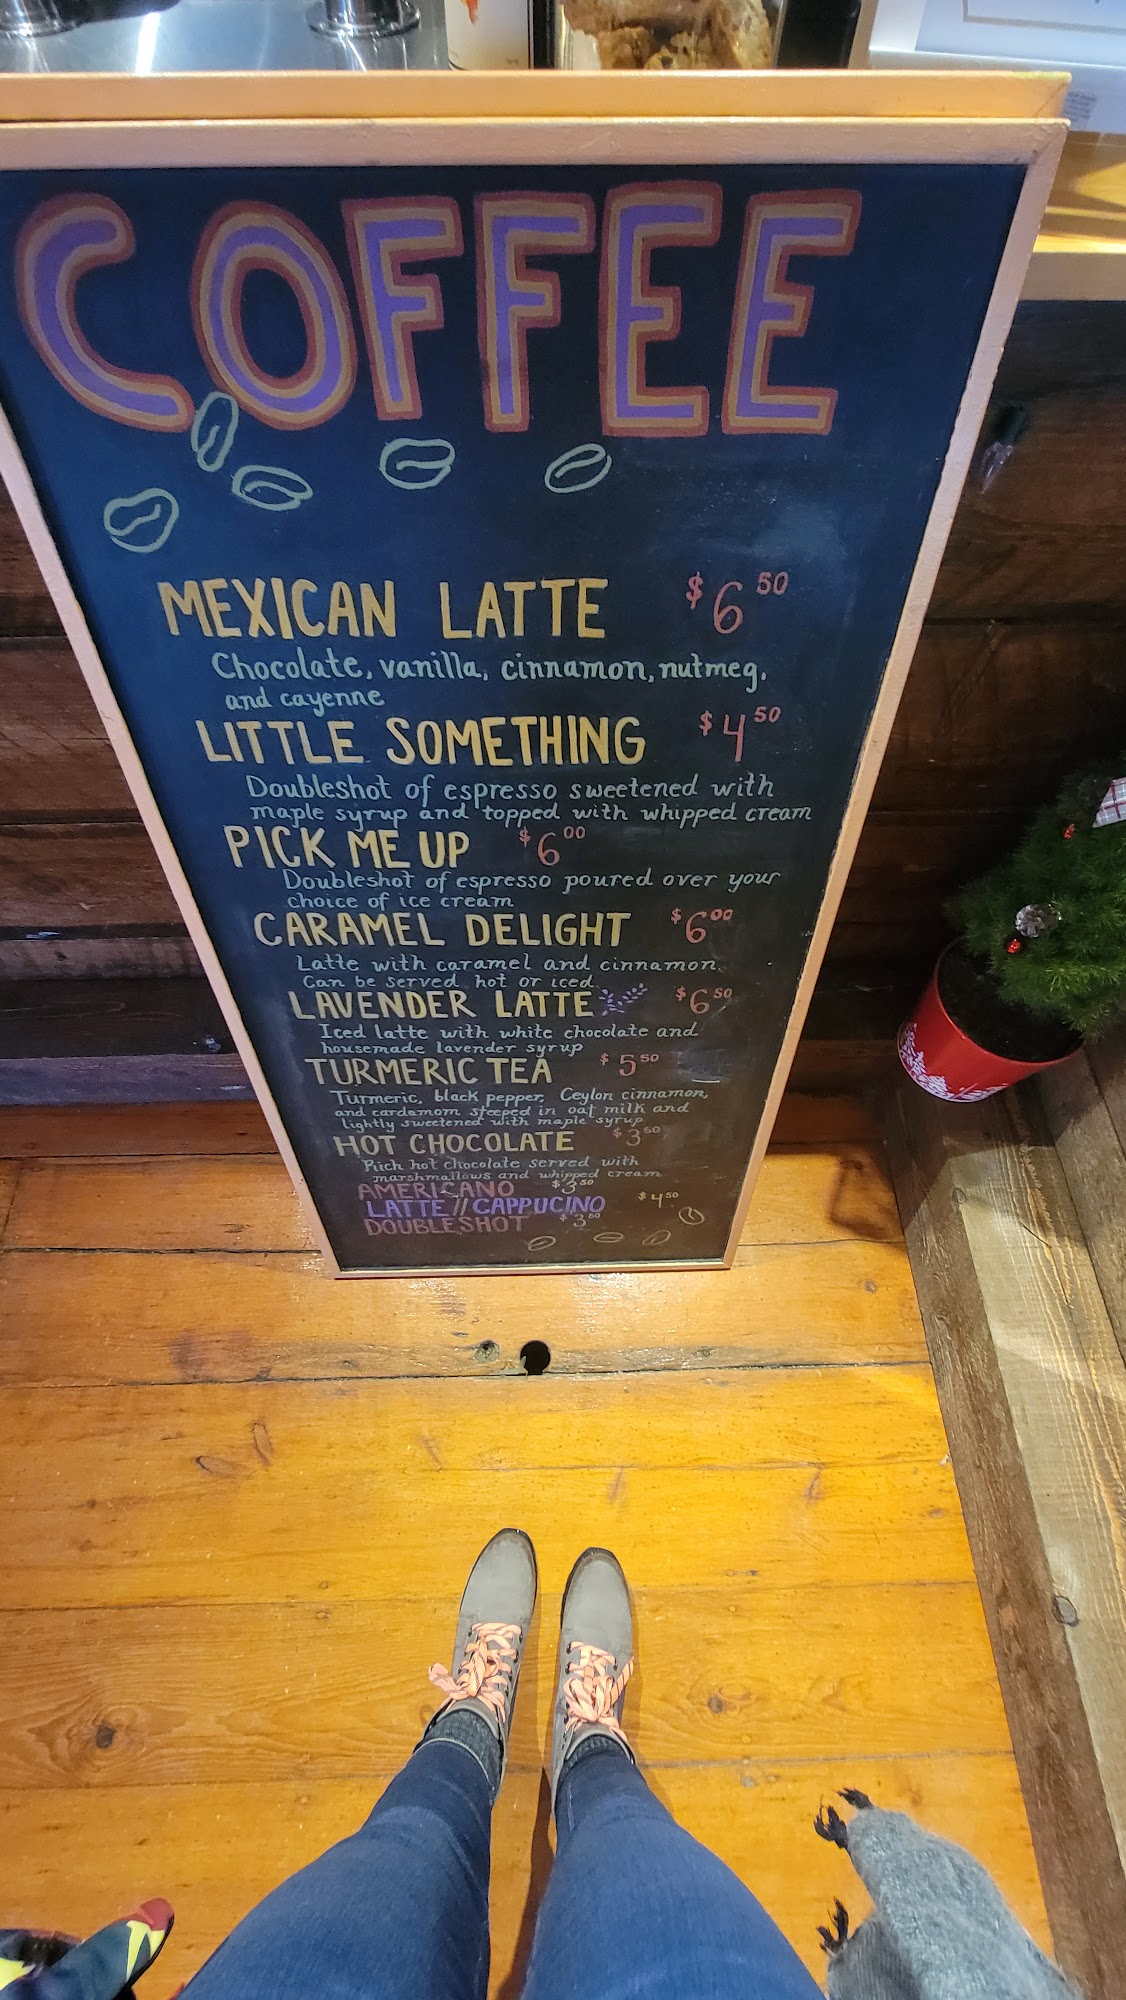 COFFEE
MEXICAN LATTE $6 50
Chocolate, vanilla, cinnamon, nutmeg,
and cayenne
LITTLE SOMETHING $4 50
Doubleshot of espresso sweetened with
maple syrup and topped with whipped cream
PICK ME UP $6 00
Doubleshot of espresso poured over your
choice of ice cream
CARAMEL DELIGHT $6 00
Latte with caramel and cinnamon.
Can be served hot or iced.
LAVENDER LATTE $6 50
Iced latte with white chocolate and
housemade lavender syrup
TURMERIC TEA $5 50
Turmeric, black pepper, Ceylon cinnamon,
and cardamom steeped in oat milk and
lightly sweetened with maple syrup
HOT CHOCOLATE $3 50
Rich hot chocolate served with
marshmallows and whipped cream
AMERICANO $3 50
LATTE // CAPPUCINO $4 50
DOUBLESHOT $3 50